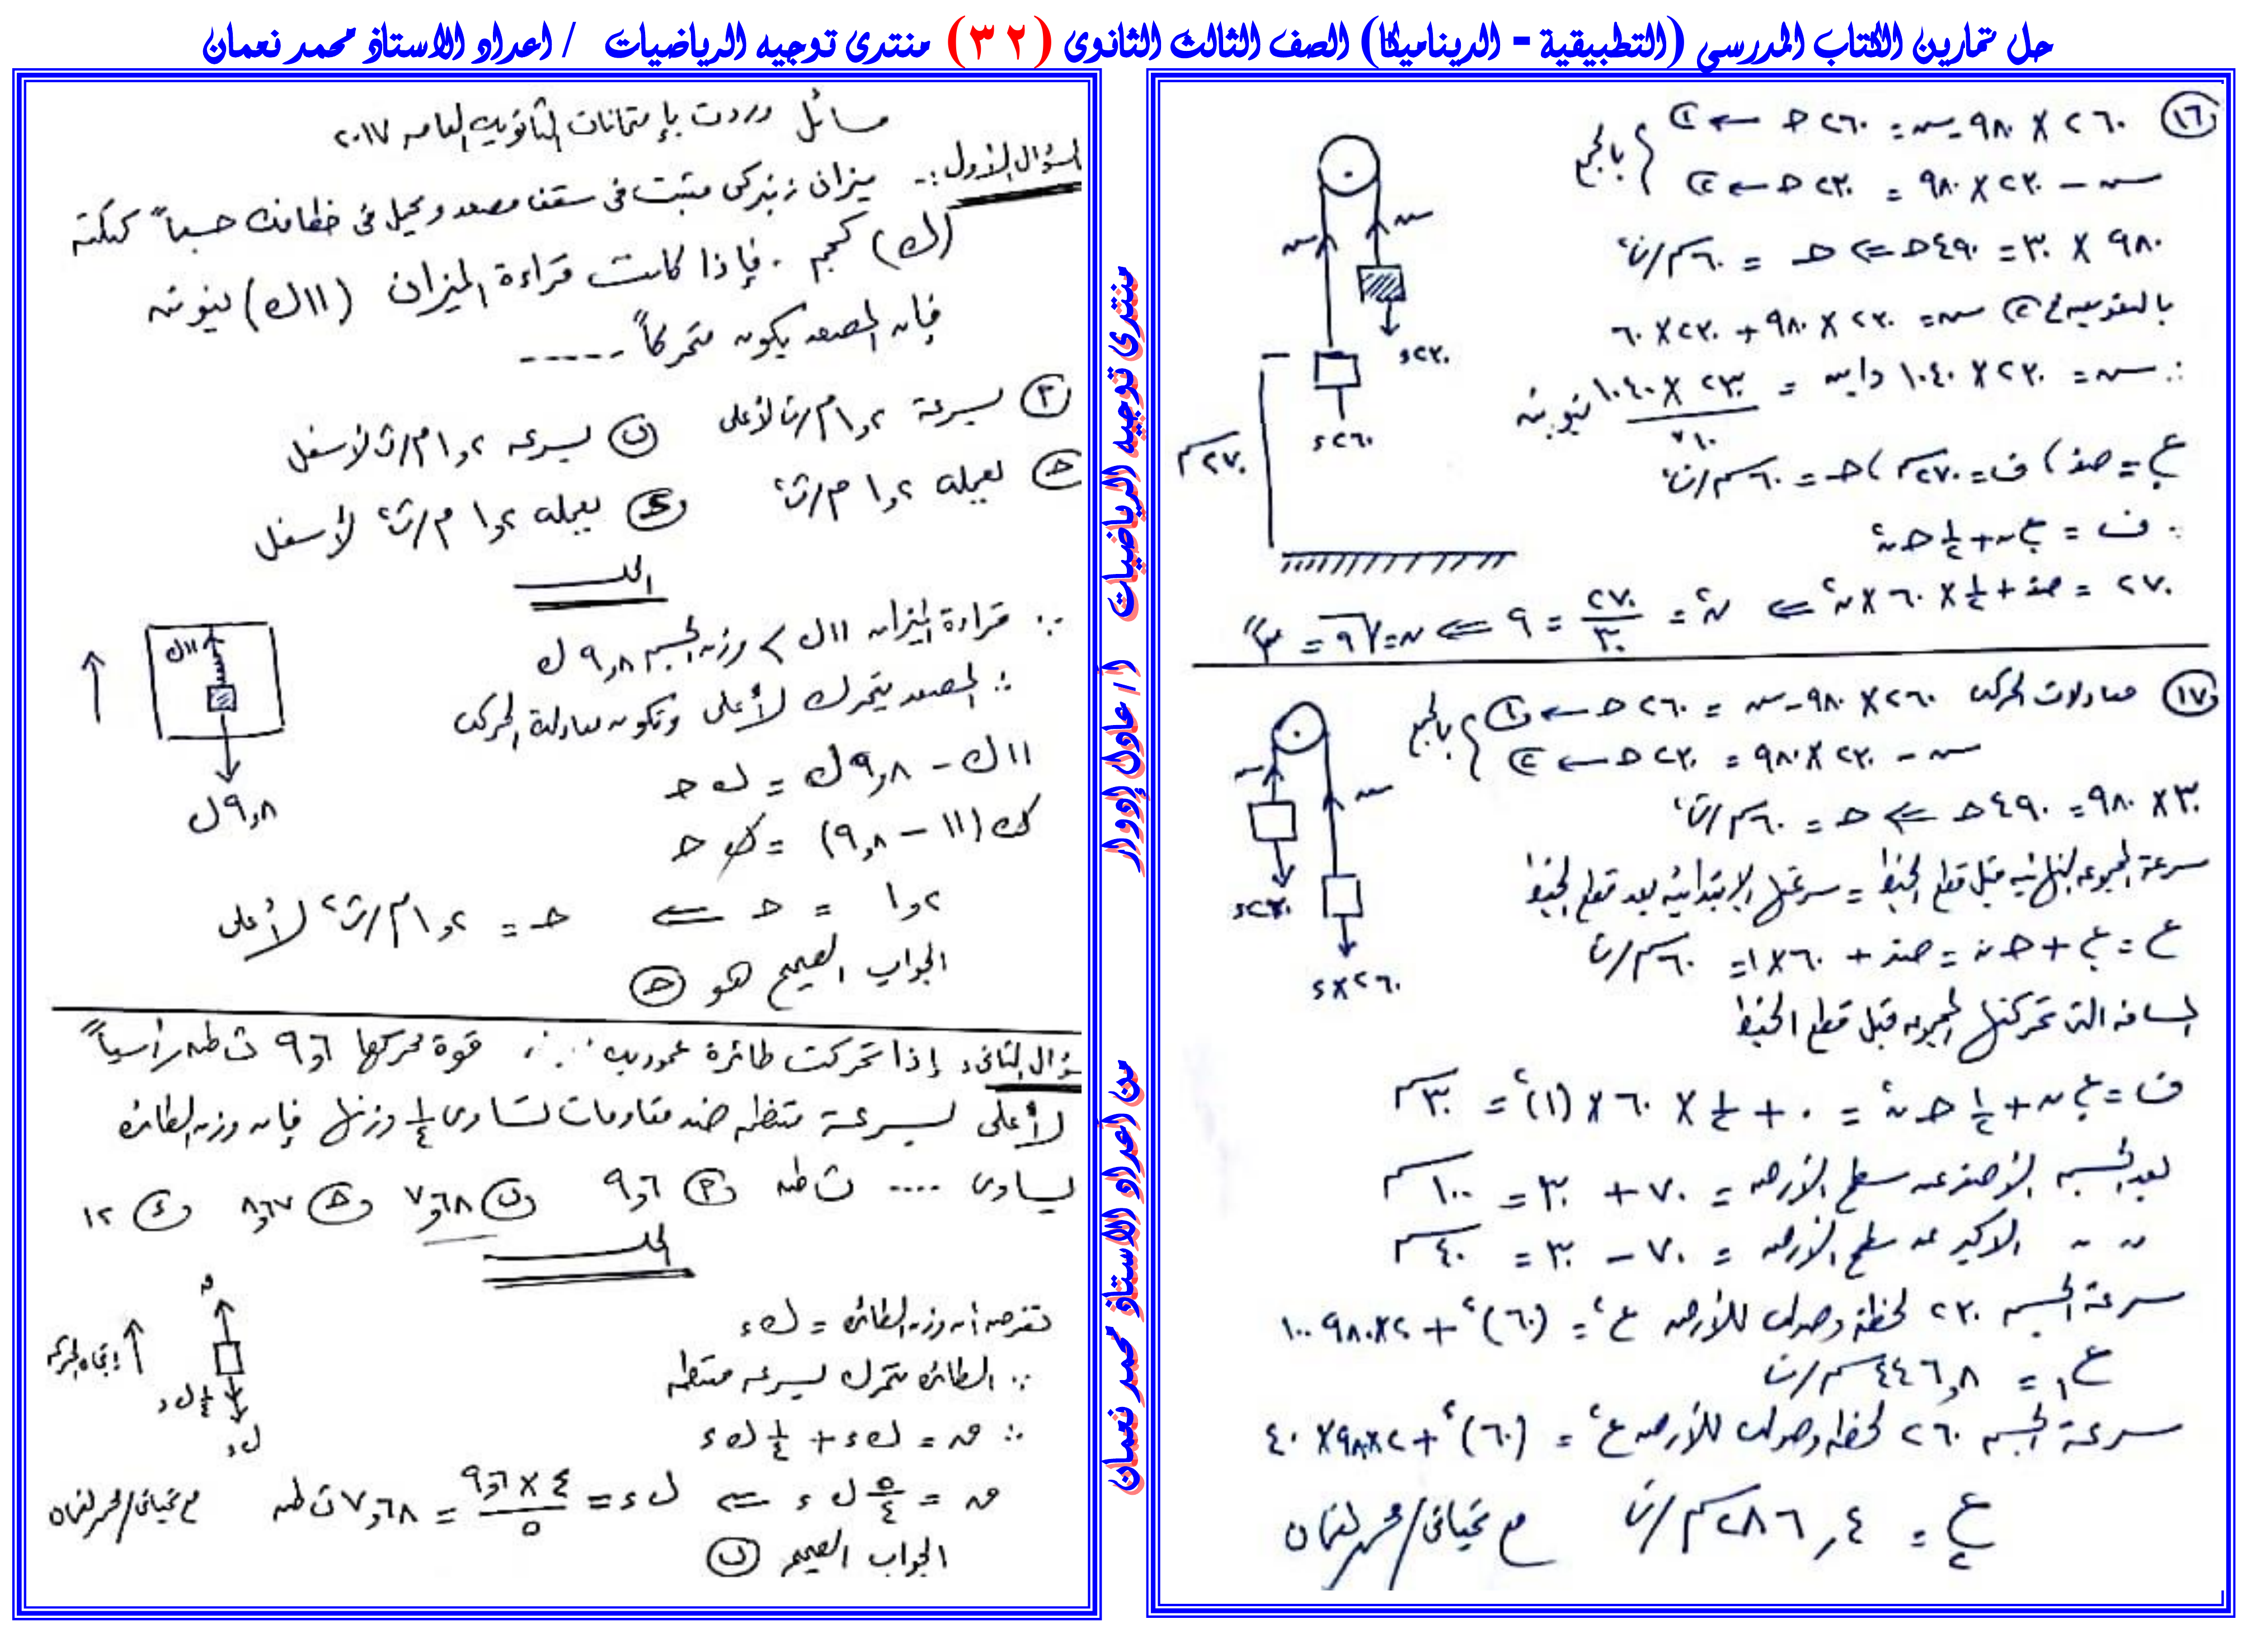 حل تمارين الكتاب المدرسي (التطبيقية - الديناميكا) الصف الثالث الثانوى (٣٢) منتدى توجيه الرياضيات / اعداد الاستاذ محمد نعمان
١٦ ٢٦٠ × ٩٨٠ - سہ = ٢٦٠ حـ ← ١
سہ - ٢٣٠ × ٩٨٠ = ٢٣٠ حـ ← ٢
بالجمع
٩٨٠ × ٣٠ = ٤٩٠ حـ ⇐ حـ = ٦٠ سم/ث²
بالتعويض في ٢ سہ = ٢٣٠ × ٩٨٠ + ٢٣٠ × ٦٠
∴ سہ = ٢٣٠ × ١٠٤٠ داين = ٢٣٠ × ١٠٤٠ / ١٠ نيوتن
ع. = صفر ، ف = ٢٧٠ سم ، حـ = ٦٠ سم/ث²
∵ ف = ع. ن + ١/٢ حـ ن²
٢٧٠ = صفر + ١/٢ × ٦٠ × ن² ⇐ ن² = ٢٧٠/٣٠ = ٩ ⇐ ن = √٩ = ٣ ث
سہ
سہ
٢٣٠ء
٢٦٠ء
٢٧٠ سم
١٧ معادلات الحركة ٢٦٠ × ٩٨٠ - سہ = ٢٦٠ حـ ← ١
سہ - ٢٣٠ × ٩٨٠ = ٢٣٠ حـ ← ٢
بالجمع
٣٠ × ٩٨٠ = ٤٩٠ حـ ⇐ حـ = ٦٠ سم/ث²
سرعة المجموعة النهائية قبل قطع الخيط = سرعتها الإبتدائية بعد قطع الخيط
ع = ع. + حـ ن = صفر + ٦٠ × ١ = ٦٠ سم/ث
المسافة التى تحركتها المجموعة قبل قطع الخيط
ف = ع. ن + ١/٢ حـ ن² = ٠ + ١/٢ × ٦٠ × (١)² = ٣٠ سم
بعد الجسم الأصغر عن سطح الأرض = ٧٠ + ٣٠ = ١٠٠ سم
〃 〃 الاكبر عن سطح الأرض = ٧٠ - ٣٠ = ٤٠ سم
سرعة الجسم ٢٣٠ لحظة وصوله للأرض ع² = (٦٠)² + ٢×٩٨٠×١٠٠
ع١ = ٤٤٦,٨ سم/ث
سرعة الجسم ٢٦٠ لحظة وصوله للأرض ع² = (٦٠)² + ٢×٩٨٠×٤٠
ع٢ = ٢٨٦,٤ سم/ث مع تحياتى/محمد نعمان
سہ
سہ
٢٣٠ء
٢٦٠×ء
منتدى توجيه الرياضيات
أ / عادل إدوار
من أعداد الاستاذ محمد نعمان
مسائل وردت بإمتحانات الثانوية العامة ٢٠١٧
السؤال الأول :- ميزان زنبركى مثبت فى سقف مصعد ويحمل فى خطافه جسماً كتلته
(ك) كجم . فإذا كانت قراءة الميزان (١١ك) نيوتن
فإن المصعد يكون متحركاً -----
أ بسرعة ١,٢ م/ث لأعلى ب بسرعة ١,٢ م/ث لأسفل
حـ بعجلة ١,٢ م/ث² د بعجلة ١,٢ م/ث² لأسفل
الحل
∵ قراءة الميزان ١١ك > وزن الجسم ٩,٨ ك
∴ المصعد يتحرك لأعلى وتكون معادلة الحركة
١١ك - ٩,٨ ك = ك حـ
ك (١١ - ٩,٨) = ك حـ
١,٢ = حـ ⇐ حـ = ١,٢ م/ث² لأعلى
الجواب الصحيح هو حـ
١١ك
٩,٨ ك
سؤال الثانى: إذا تحركت طائرة عمودية قوة محركها ٩,٦ ث طن رأسياً
لأعلى بسرعة منتظمة ضد مقاومات تساوى ١/٤ وزنها فإن وزن الطائرة
يساوى .... ث طن أ ٩,٦ ب ٧,٦٨ حـ ٨,٦٧ د ١٢
الحل
نفرض أن وزن الطائرة = ك ء
∵ الطائرة تتحرك بسرعة منتظمة
∴ ص = ك ء + ١/٤ ك ء
ص = ٥/٤ ك ء ⇐ ك ء = ٤ × ٩,٦ / ٥ = ٧,٦٨ ث طن مع تحياتى/محمد نعمان
الجواب الصحيح ب
إتجاه الحركة
١/٤ ك ء
ك ء